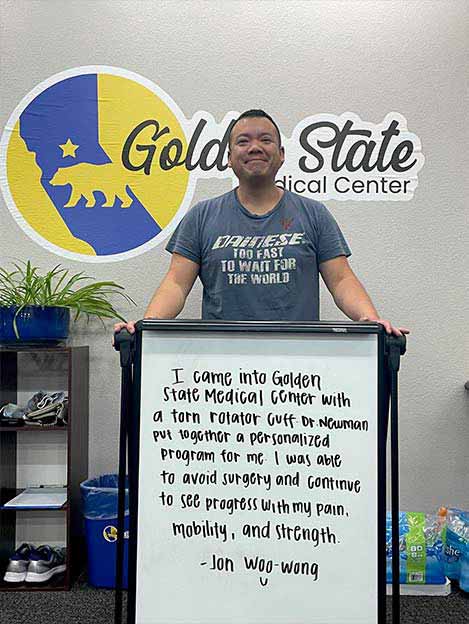 Golden State
Medical Center
DAINESE
TOO FAST
TO WAIT FOR
THE WORLD
I came into Golden
State Medical Center with
a torn rotator cuff. Dr. Newman
put together a personalized
program for me. I was able
to avoid surgery and continue
to see progress with my pain,
mobility, and strength.
-Jon Woo-wong